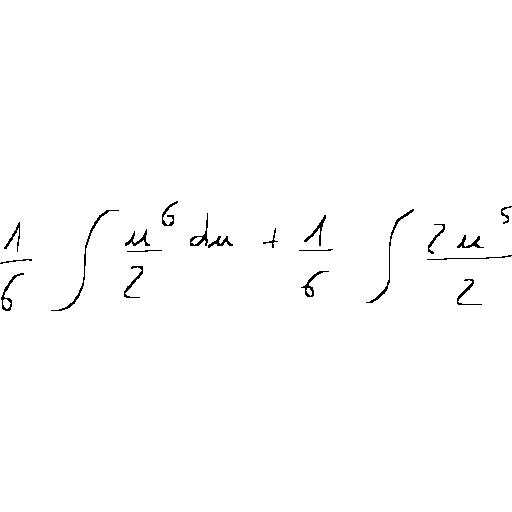 \frac{1}{6} \int \frac{u^6}{2} du + \frac{1}{6} \int \frac{2u^5}{2}